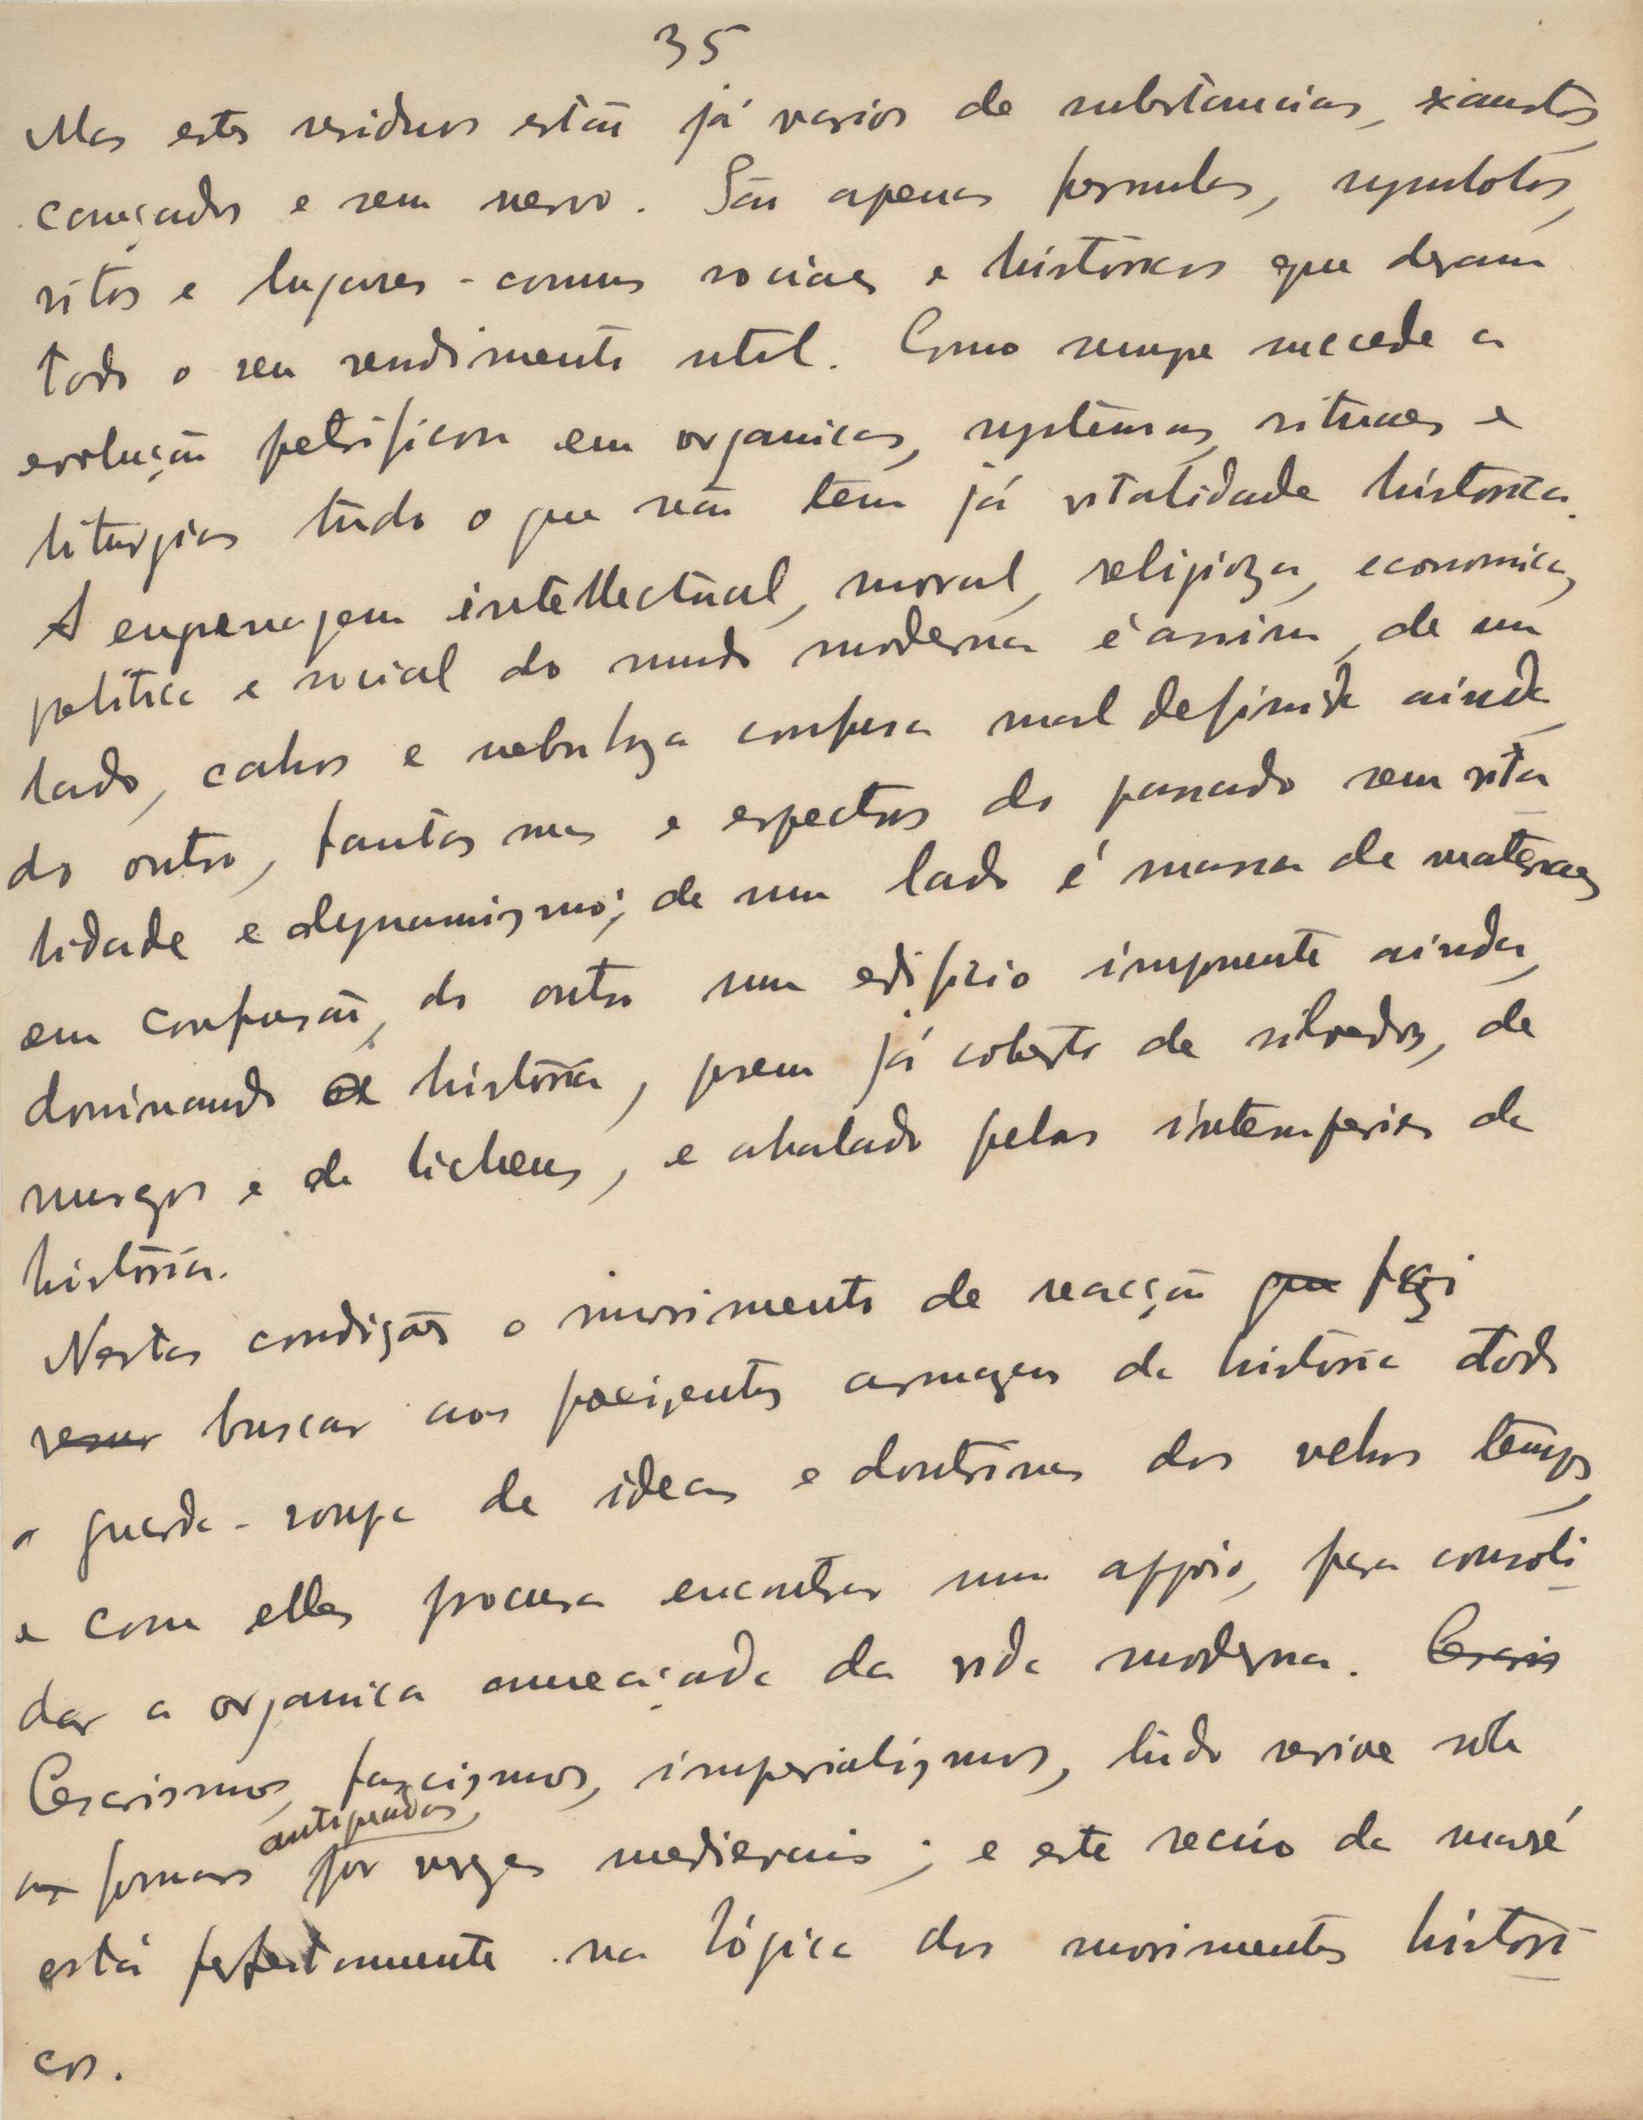 35
Mas estes residuos estão já vasios de substancias, exaustos,
cançados e sem nervo. São apenas formulas, symbolos,
ritos e lugares-comuns sociaes e historicos que deram
todo o seu rendimento util. Como sempre succede a
evolução petrificou em organicas, systemas, rituaes e
liturgias tudo o que não tem já vitalidade historica.
A engrenagem intellectual, moral, religioza, economica,
politica e social do mundo moderna é assim, de um
lado, cahos e nebuloza confusa mal definida ainda,
do outro, fantasmas e espectros do passado sem vita
lidade e dynamismo; de um lado é massa de materiaes
em confusão, do outro um edificio imponente ainda,
dominando a historia, porem já coberto de silvedos, de
musgos e de lichens, e abalado pelas intemperies da
historia.
Nestas condições o movimento de reacção que foi
buscar aos armazens da historia todo
o guarda-roupa de ideas e doutrinas dos velhos tempos,
e com elles procura encontrar um appoio, para consoli
dar a organica ameaçada da vida moderna.
Cesarismos, fascismos, imperialismos, tudo revive sob
as formas antiquadas, por vezes medievais; e este recúo da maré
está perfeitamente na lógica dos movimentos histori
cos.